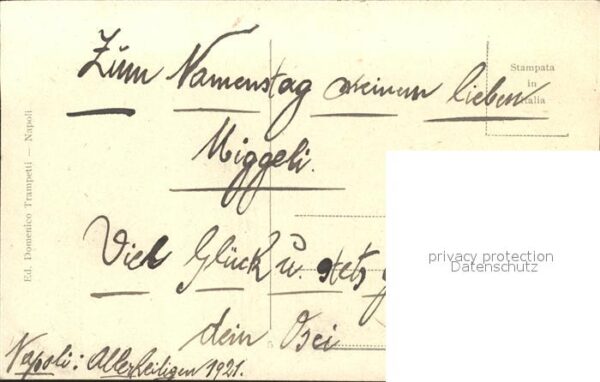 Zum Namenstag meinem lieben
Miggeli.
Viel Glück u. stets
dein
Napoli: Allerheiligen 1921.
Stampata
in
Italia
Ed. Domenico Trampetti — Napoli
privacy protection
Datenschutz